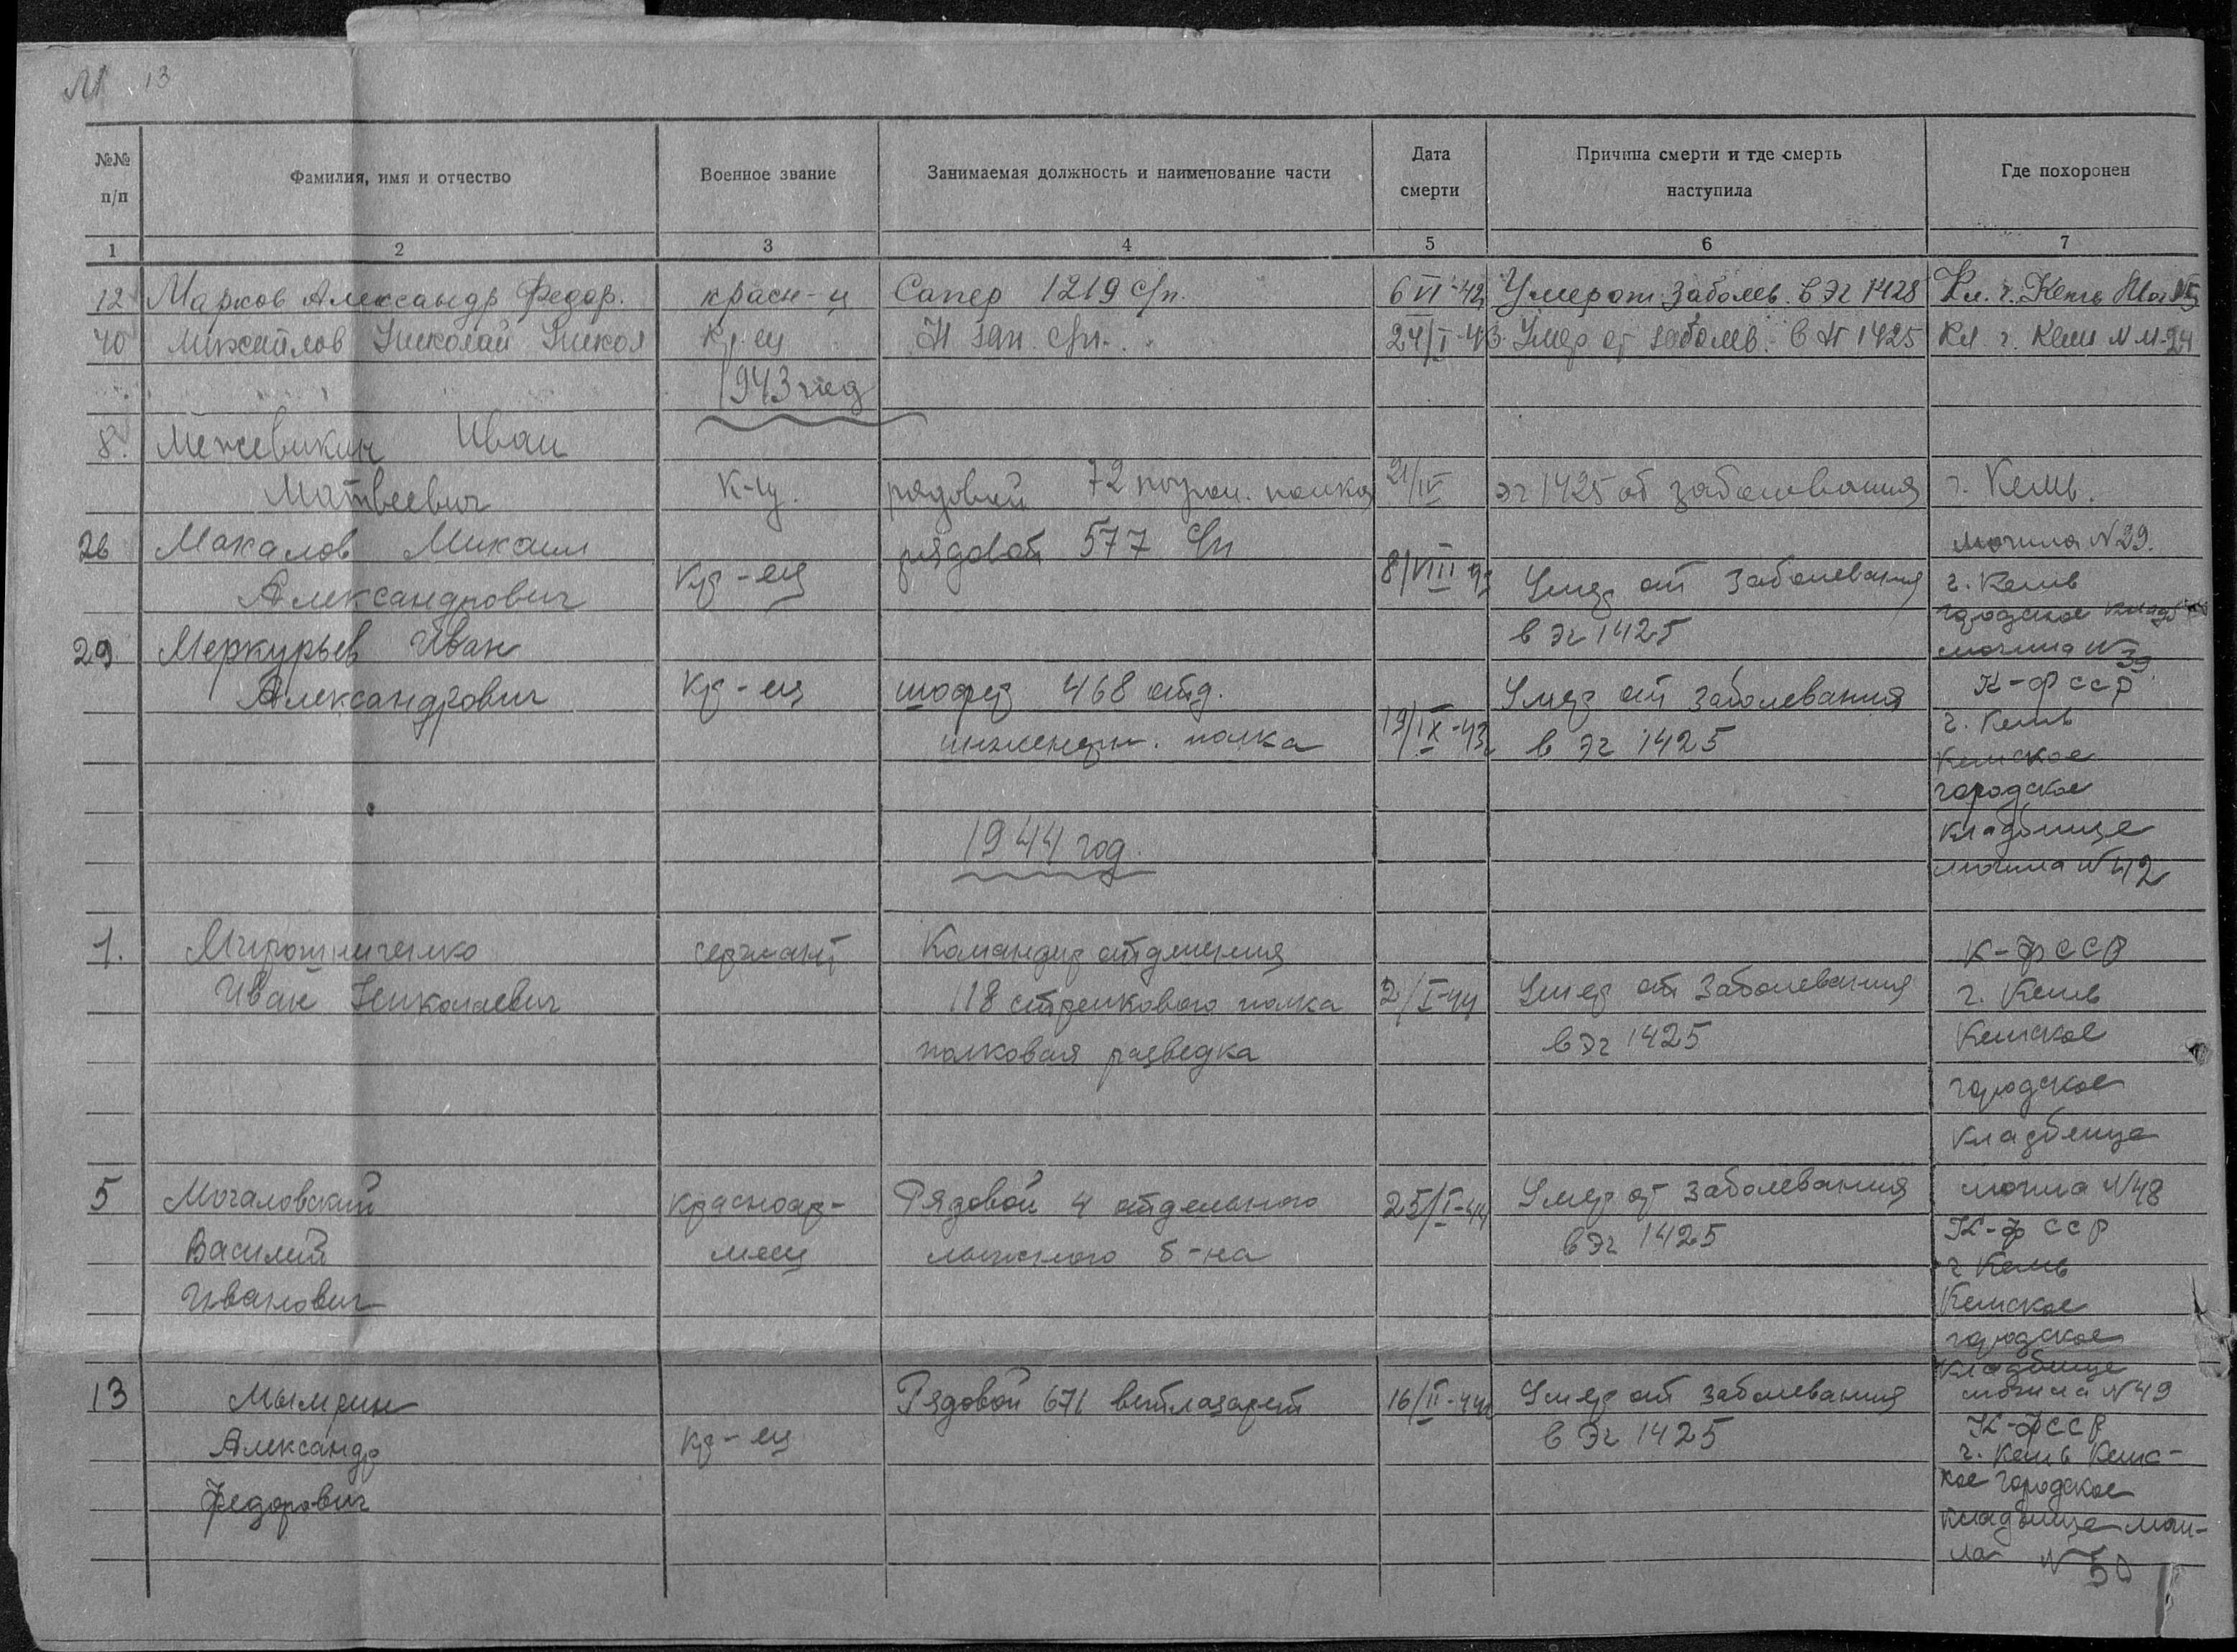 М 13
№№ п/п
Фамилия, имя и отчество
Военное звание
Занимаемая должность и наименование части
Дата смерти
Причина смерти и где смерть наступила
Где похоронен
1 2 3 4 5 6 7
12 Марков Александр Федор. красн-ц Сапер 1219 с/п. 6 VI-42 Умер от заболев. в ЭГ 1428 Кл. г. Кемь
40 Михайлов Николай Никол Кр. ец зап. с/п. 24/I-43 Умер от заболев. в 1425 Кл. г. Кемь N М-24
1943 год
8. Межевикин Иван
Матвеевич К-ц. рядовой 72 погран. полка 21/IV ЭГ 1425 от заболевания г. Кемь.
могила N 29.
26 Макалов Михаил рядовой 577 с/п
Александрович Кр-ец 8/VIII 43 Умер от заболевания г. Кемь
в ЭГ 1425 городское кладб
могила N 39
29 Меркурьев Иван
Александрович Кр-ец шофер 468 отд. Умер от заболевания К-Ф ССР
инженерн. полка 19/IX-43 в ЭГ 1425 г. Кемь
Кемское
городское
кладбище
могила N 42
1944 год.
1. Мирошниченко сержант Командир отделения К-Ф ССР
Иван Николаевич 118 стрелкового полка 2/I-44 Умер от заболевания г. Кемь
полковая разведка в ЭГ 1425 Кемское
городское
кладбище
могила N 48
5 Мочаловский Красноар- Рядовой 4 отдельного 25/I-44 Умер от заболевания К-Ф ССР
Василий меец лыжного б-на в ЭГ 1425 г Кемь
Иванович Кемское
городское
кладбище
могила N 49
13 Мымрин Рядовой 671 ветлазарет 16/II-44 Умер от заболевания К-Ф ССР
Александр Кр-ец в ЭГ 1425 г. Кемь Кемс-
Федорович кое городское
кладбище моги-
ла N 50